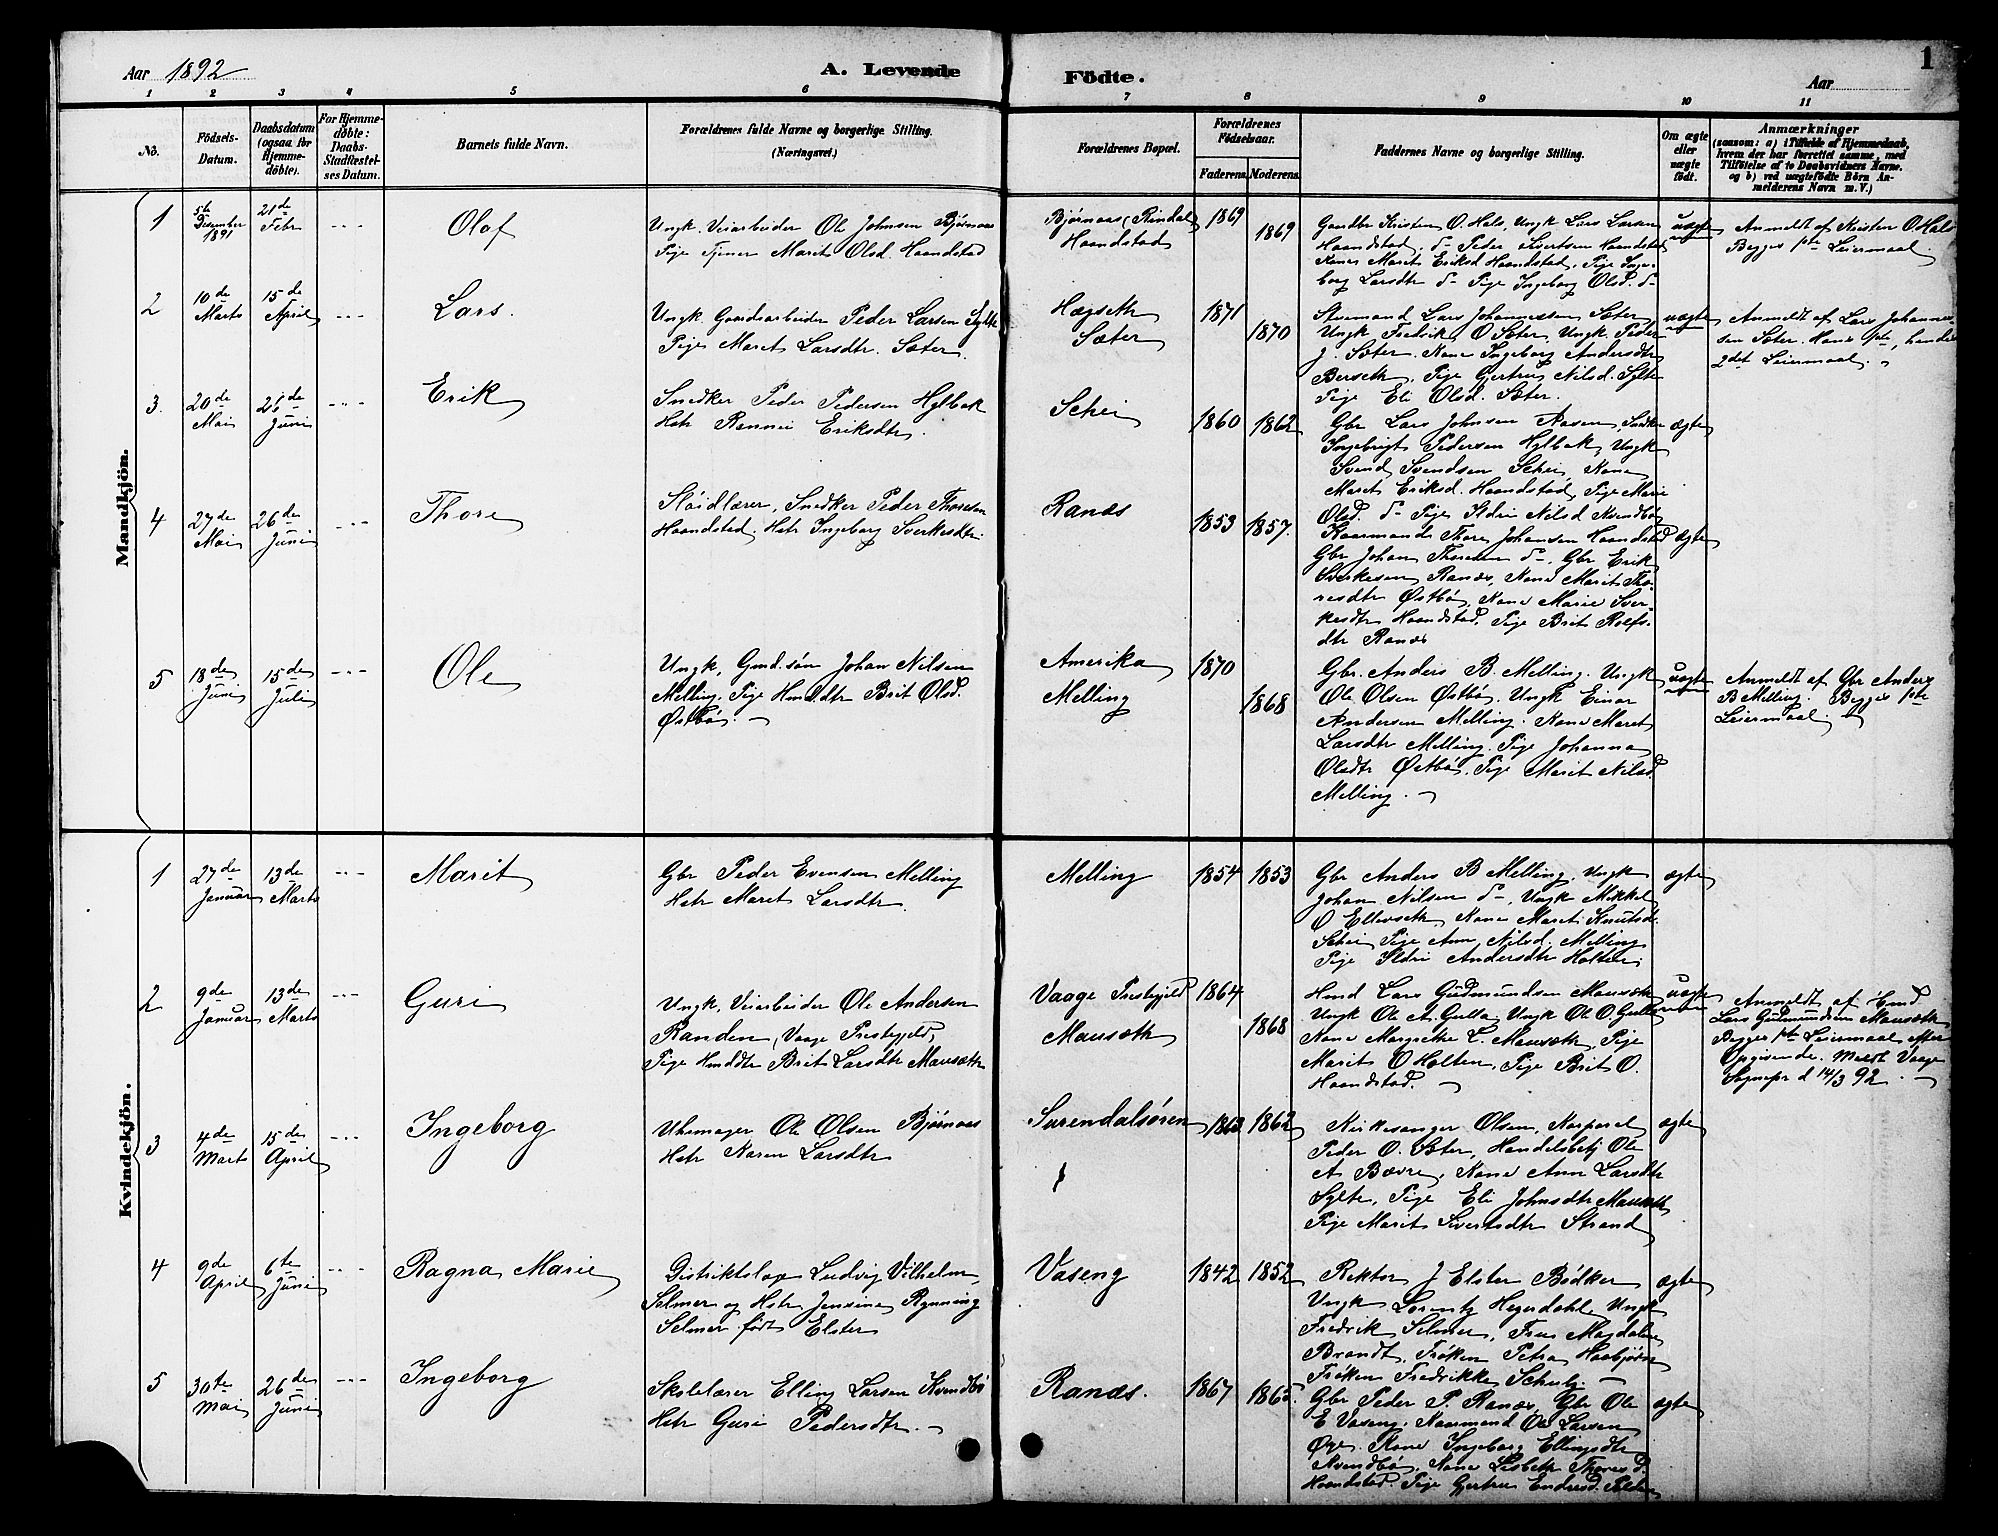 1
Aar 1892
A. Levende
Födte.
Aar
1 2 3 4 5 6 7 8 9 10 11
Nô.
Födsels-
Datum.
Daabsdatum
(ogsaa for
Hjemme-
döbte).
For Hjemme-
döbte:
Daabs-
Stadfæstel-
ses Datum.
Barnets fulde Navn.
Forældrenes fulde Navne og borgerlige Stilling.
(Næringsvei.)
Forældrenes Bopæl.
Forældrenes
Födselsaar.
Faderens.
Moderens.
Faddernes Navne og borgerlige Stilling.
Om ægte
eller
uægte
födt.
Anmærkninger
(saasom: a) i Tilfælde af Hjemmedaab,
hvem der har forrettet samme, med
Tilföielse af to Daabsvidners Navne.
og b) ved uægtefödte Börn An-
melderens Navn m. V.)
Mandkjön.
1
5te
December
1891
21de
Febr
Olaf
Ungk. Veiarbeider Ole Johnsen Bjørnaas
Pige Tjener Marit Olsd. Haandstad
Bjørnaas (Rindal)
Haandstad
1869
1869
Gaardbr Kristen O. Hals, Ungk Lars Larsen
Haandstad, d- Peder Sivertsen Haandstad
Kone Marit Eriksd Haandstad, Pige Inge-
borg Larsdtr d- Pige Ingeborg Olsd. d-
uægte
Anmeldt af Kristen O. Hals
Begges 1ste Leiermaal.
2
10de
Marts
15de
April
Lars.
Ungk. Gaardsarbeider Peder Larsen Sylte
Pige Maret Larsdtr. Sæter.
Hægseth
Sæter
1871
1870
Stuemand Lars Johannessen Sæter
Ungk Fredrik O Sæter, Ungk Peder
J. Sæter. Kone Ingeborg Andersdtr
Berseth, Pige Gjertru Nilsd. Sylte
Pige Eli Olsd. Sæter.
uægte
Anmeldt af Lars Johannes-
sen Sæter. Hans 1ste, hendes
2det Leiermaal.
3.
20de
Mai
26de
Juni
Erik
Snedker Peder Pedersen Hylbak
Hstr Rannei Eriksdtr.
Schei
1860
1862
Gbr Lars Johnsen Aasen, Snedker
Ingebrigt Pedersen Hylbak, Ungk
Svend Svendsen Schei, Kone
Maret Eriksd. Haandstad, Pige Marie
Olsd. d- Pige Ildri Nilsd Kvendbø
ægte
4
27de
Mai
26de
Juni
Thore
Sløidlærer, Snedker Peder Thoresen
Haandstad, Hstr Ingeborg Sverkesdtr.
Ranæs
1853
1857.
Kaarmand Thore Johansen Haandstad
Gbr Johan Thoresen d-, Gbr Erik
Sverkesen Ranæs, Kone Marit Tho-
resdtr Østbø, Kone Marie Sver-
kesdtr Haandstad, Pige Brit Rolfs-
dtr Ranæs
ægte
5
18de
Juni
15de
Juli
Ole
Ungk, Gmd.søn Johan Nilsen
Melling, Pige Hmddtr Brit Olsd.
Østbø.
Amerika
Melling
1870
1868
Gbr. Anders B. Melling. Ungk
Ole Olsen Østbø, Ungk Einar
Andersen Melling. Kone Maret
Larsdtr Melling. Pige Johanna
Olsdtr Østbø. Pige Marit Nilsd.
Melling.
uægte
Anmeldt af Gbr Anders
B Melling. Begges 1ste
Leiermaal.
Kvindekjön.
1
27de
Januar
13de
Marts
Marit
Gbr Peder Evensen Melling
Hstr Maret Larsdtr.
Melling
1854
1853
Gbr Anders B Melling, Ungk
Johan Nilsen d-, Ungk Mikkel
O Ellevseth, Kone Maret Knutsd.
Schei Pige Ann Nilsd. Melling
Pige Ildri Andersdtr Holten.
ægte
2
9de
Januar
13de
Marts
Guri
Ungk, Veiarbeider Ole Andersen
Randen, Vaage Prestegjeld,
Pige Hmddtr Brit Larsdtr Mausæth
Vaage Prestegjeld
Mausæth
1864
1868
Hmd Lars Gudmundsen Mausæth
Ungk Ole A. Gulla, Ungk Ole O. Gulla
Kone Margrethe L. Mausæth, Pige
Marit O Holten, Pige Brit O.
Haandstad.
uægte
Anmeldt af Hmd
Lars Gudmundsen Mausæth
Begges 1ste Leiermaal efter
Opgivende. Meldt Vaage
Sognepr d 14/3 92.
3
4de
Marts
15de
April
Ingeborg
Uhrmager Ole Olsen Bjørnaas
Hstr Karen Larsdtr
Surendalsøren
1863
1862
Kirkesanger Olsen, Korporal
Peder O. Sæter, Handelsbetj Ole
A Bævre, Kone Ann Larsdtr
Sylte, Pige Eli Johnsdtr Mausæth
Pige Marit Sivertsdtr Strand
ægte
4
9de
April
6te
Juni
Ragna Marie
Distriktslæge Ludvig Vilhelm
Selmer og Hstr Jensine Rynning
Selmer født Elster
Vaseng
1842
1852
Rektor J Elster Bødker
Ungk Lorentz Hegerdahl Ungk
Fredrik Selmer, Frue Magdalene
Brandt, Frøken Petra Haabjørn
Frøken Fredrikke Schulz.
ægte
5
30te
Mai
26de
Juni
Ingeborg
Skolelærer Elling Larsen Kvendbø
Hstr Guri Pedersdtr.
Ranæs.
1867
1865.
Gbr Peder P. Ranæs, Gbr Ole
E Vaseng, Kaarmand Ole Larsen
Øye. Kone Ingeborg Ellingsdtr
Kvendbø, Kone Lisbeth Thoresd.
Haandstad. Pige Gjertru Endresd.
ægte